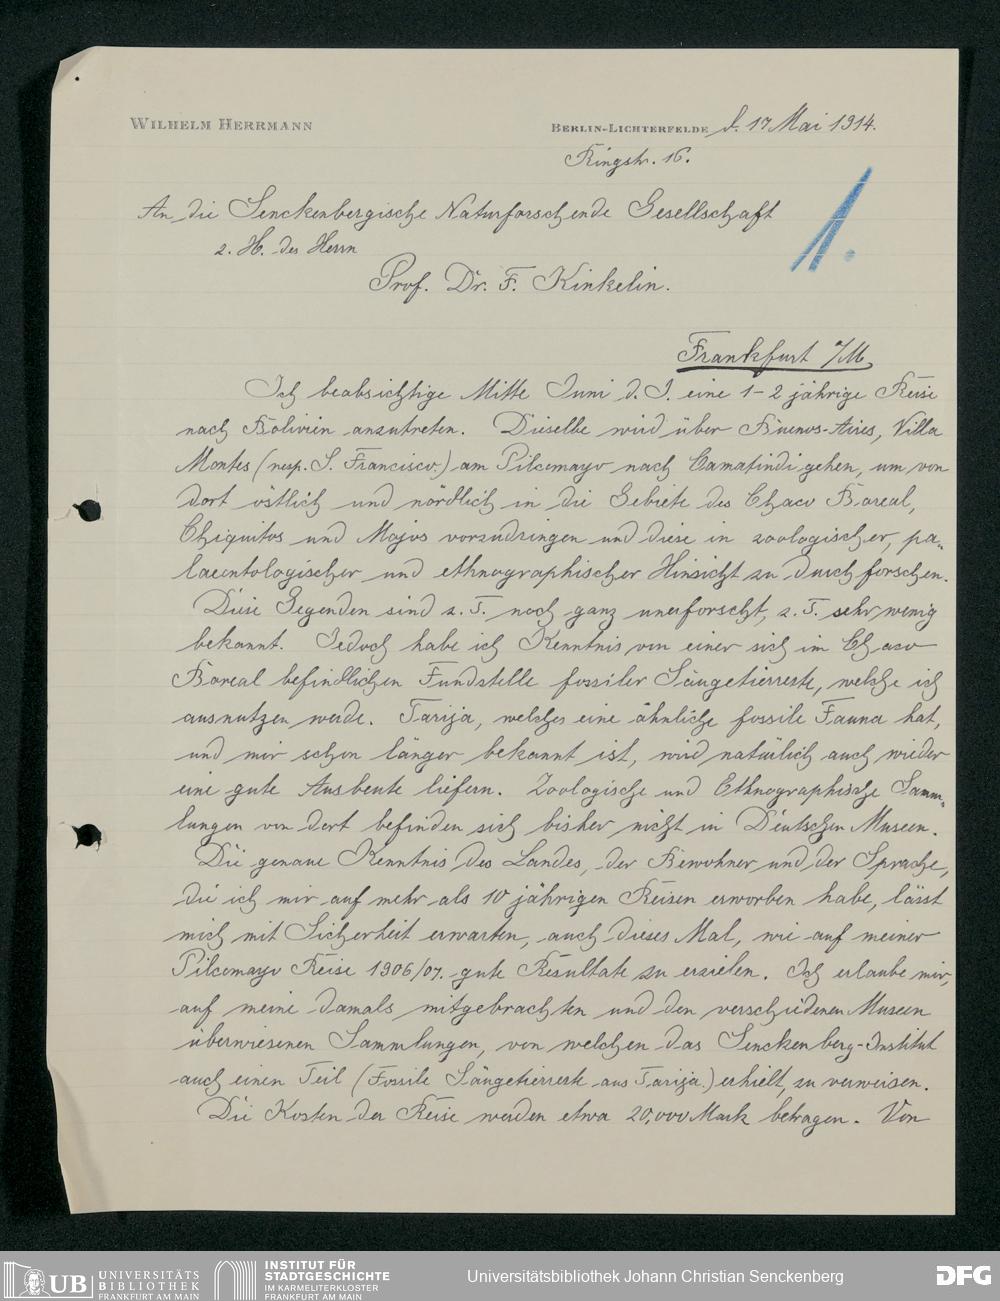 WILHELM HERRMANN
BERLIN-LICHTERFELDE d. 17 Mai 1914.
Ringstr. 16.
An die Senckenbergische Naturforschende Gesellschaft
z. H. des Herrn
Prof. Dr. F. Kinkelin.
1.
Frankfurt a/M.
Ich beabsichtige Mitte Juni d. J. eine 1-2 jährige Reise
nach Bolivien anzutreten. Dieselbe wird über Buenos-Aires, Villa
Montes (resp. S. Francisco.) am Pilcomayo nach Camatindi gehen, um von
dort östlich und nördlich in die Gebiete des Chaco Boreal,
Chiquitos und Mojos vorzudringen und diese in zoologischer, pa-
laeontologischer und ethnographischer Hinsicht zu durchforschen.
Diese Gegenden sind z. T. noch ganz unerforscht, z. T. sehr wenig
bekannt. Jedoch habe ich Kenntnis von einer sich im Chaco
Boreal befindlichen Fundstelle fossiler Säugetierreste, welche ich
ausnutzen werde. Tarija, welches eine ähnliche fossile Fauna hat,
und mir schon länger bekannt ist, wird natürlich auch wieder
eine gute Ausbeute liefern. Zoologische und Ethnographische Samm-
lungen von dort befinden sich bisher nicht in Deutschen Museen.
Die genaue Kenntnis des Landes, der Bewohner und der Sprache,
die ich mir auf mehr als 10 jährigen Reisen erworben habe, lässt
mich mit Sicherheit erwarten, auch dieses Mal, wie auf meiner
Pilcomayo Reise 1906/07. gute Resultate zu erzielen. Ich erlaube mir,
auf meine damals mitgebrachten und den verschiedenen Museen
überwiesenen Sammlungen, von welchen das Senckenberg-Institut
auch einen Teil (Fossile Säugetierreste aus Tarija.) erhielt, zu verweisen.
Die Kosten der Reise werden etwa 20,000 Mark betragen. Von
UB UNIVERSITÄTS
BIBLIOTHEK
FRANKFURT AM MAIN
INSTITUT FÜR
STADTGESCHICHTE
IM KARMELITERKLOSTER
FRANKFURT AM MAIN
Universitätsbibliothek Johann Christian Senckenberg
DFG